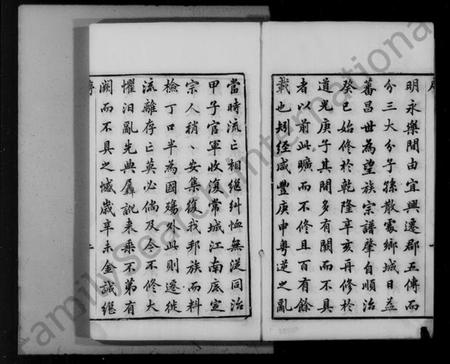 明永樂間由宜興遷郡五傳而
分三大分子孫散處鄉城日益
蕃昌世為望族宗譜肇自順治
癸巳始修於乾隆辛亥再修於
道光庚子其間多有闕而不具
者以前此曠而不修且百有餘
載也矧經咸豐庚申粤逆之亂
當時流亡相繼糾恤無從同治
甲子官軍收復常城江南底定
宗人稍稍安集復我邦族而料
檢丁口半為國殤外此則遷徙
流離存亡莫必倘及今不修大
懼汨亂先典貽訛來乘不第有
闕而不具之憾歲辛未金誠繼
FamilySearch International